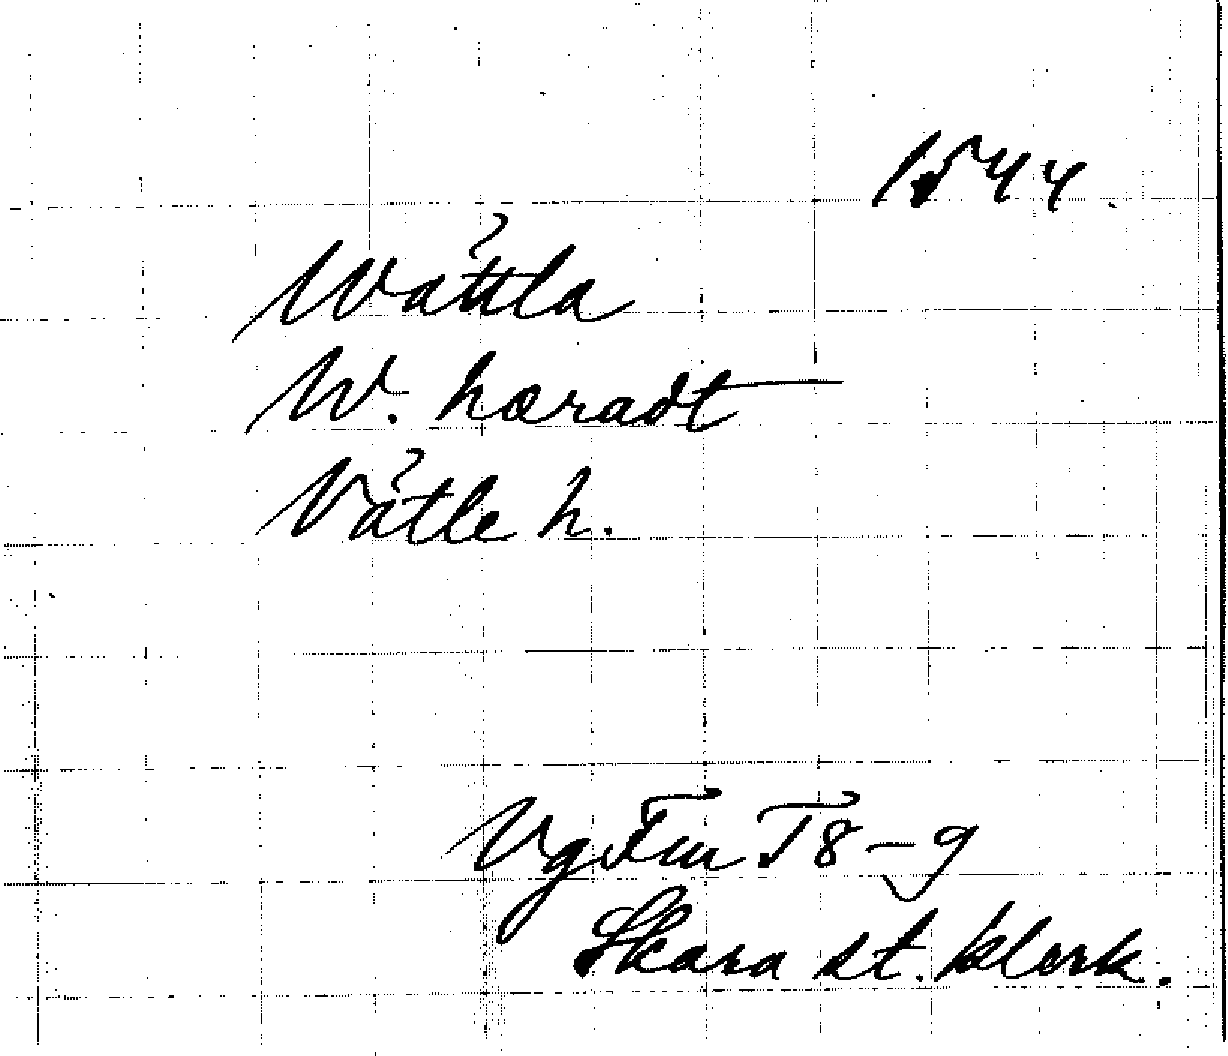 1544.
Wättla
W. hæradt
Vätle h.
Vg Fm T 8-9
Skara st. klerk.